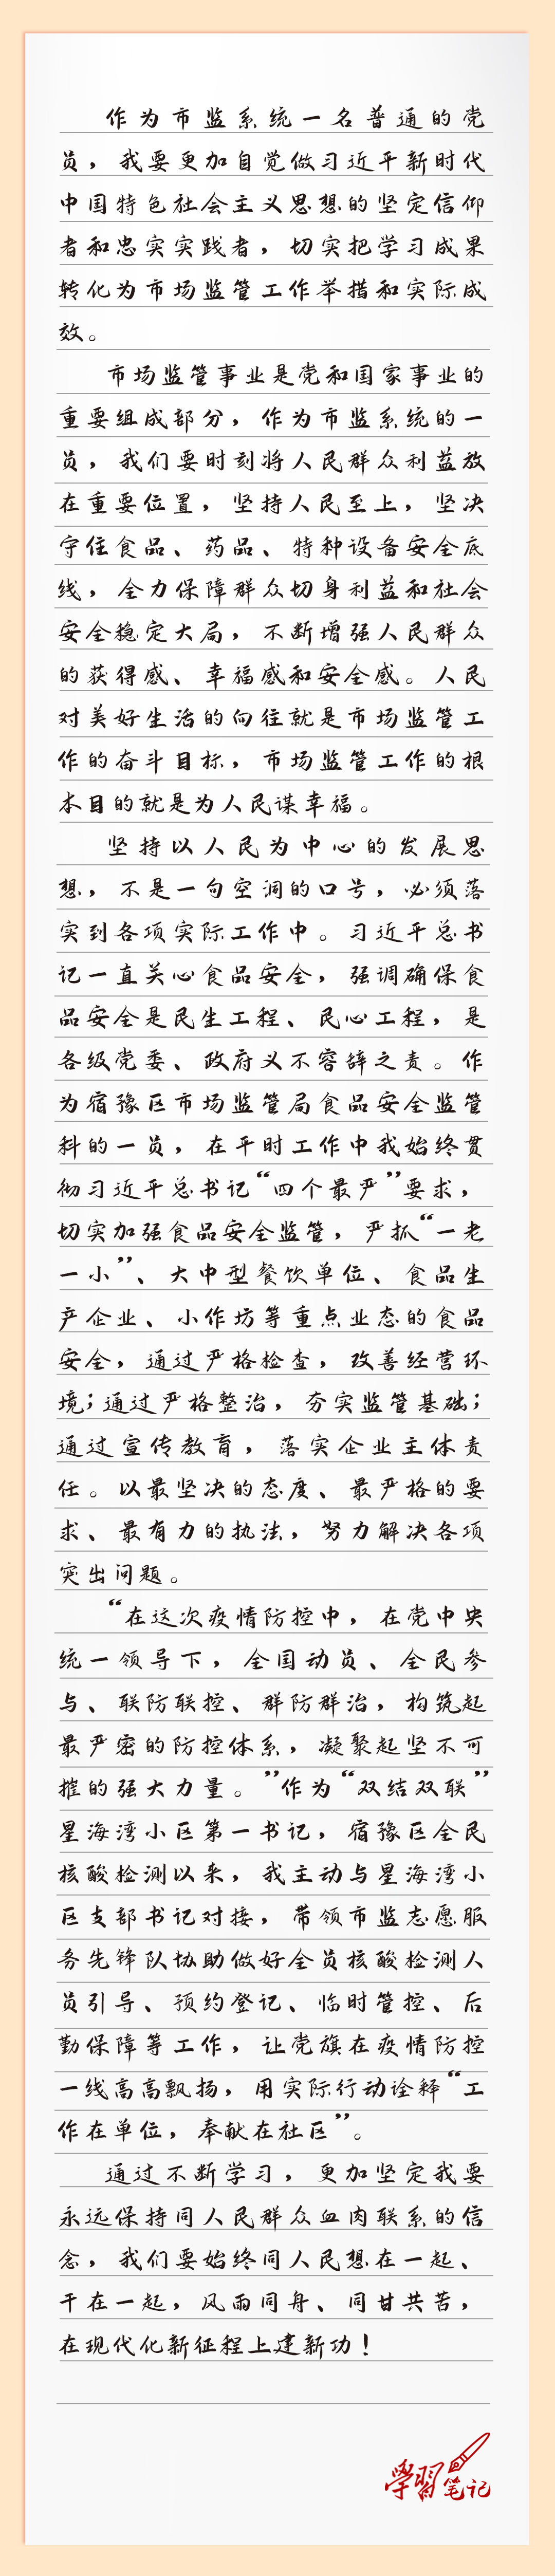 作为市监系统一名普通的党
员，我要更加自觉做习近平新时代
中国特色社会主义思想的坚定信仰
者和忠实实践者，切实把学习成果
转化为市场监管工作举措和实际成
效。
市场监管事业是党和国家事业的
重要组成部分，作为市监系统的一
员，我们要时刻将人民群众利益放
在重要位置，坚持人民至上，坚决
守住食品、药品、特种设备安全底
线，全力保障群众切身利益和社会
安全稳定大局，不断增强人民群众
的获得感、幸福感和安全感。人民
对美好生活的向往就是市场监管工
作的奋斗目标，市场监管工作的根
本目的就是为人民谋幸福。
坚持以人民为中心的发展思
想，不是一句空洞的口号，必须落
实到各项实际工作中。习近平总书
记一直关心食品安全，强调确保食
品安全是民生工程、民心工程，是
各级党委、政府义不容辞之责。作
为宿豫区市场监管局食品安全监管
科的一员，在平时工作中我始终贯
彻习近平总书记“四个最严”要求，
切实加强食品安全监管，严抓“一老
一小”、大中型餐饮单位、食品生
产企业、小作坊等重点业态的食品
安全，通过严格检查，改善经营环
境；通过严格整治，夯实监管基础；
通过宣传教育，落实企业主体责
任。以最坚决的态度、最严格的要
求、最有力的执法，努力解决各项
突出问题。
“在这次疫情防控中，在党中央
统一领导下，全国动员、全民参
与、联防联控、群防群治，构筑起
最严密的防控体系，凝聚起坚不可
摧的强大力量。”作为“双结双联”
星海湾小区第一书记，宿豫区全民
核酸检测以来，我主动与星海湾小
区支部书记对接，带领市监志愿服
务先锋队协助做好全员核酸检测人
员引导、预约登记、临时管控、后
勤保障等工作，让党旗在疫情防控
一线高高飘扬，用实际行动诠释“工
作在单位，奉献在社区”。
通过不断学习，更加坚定我要
永远保持同人民群众血肉联系的信
念，我们要始终同人民想在一起、
干在一起，风雨同舟、同甘共苦，
在现代化新征程上建新功！
學習笔记